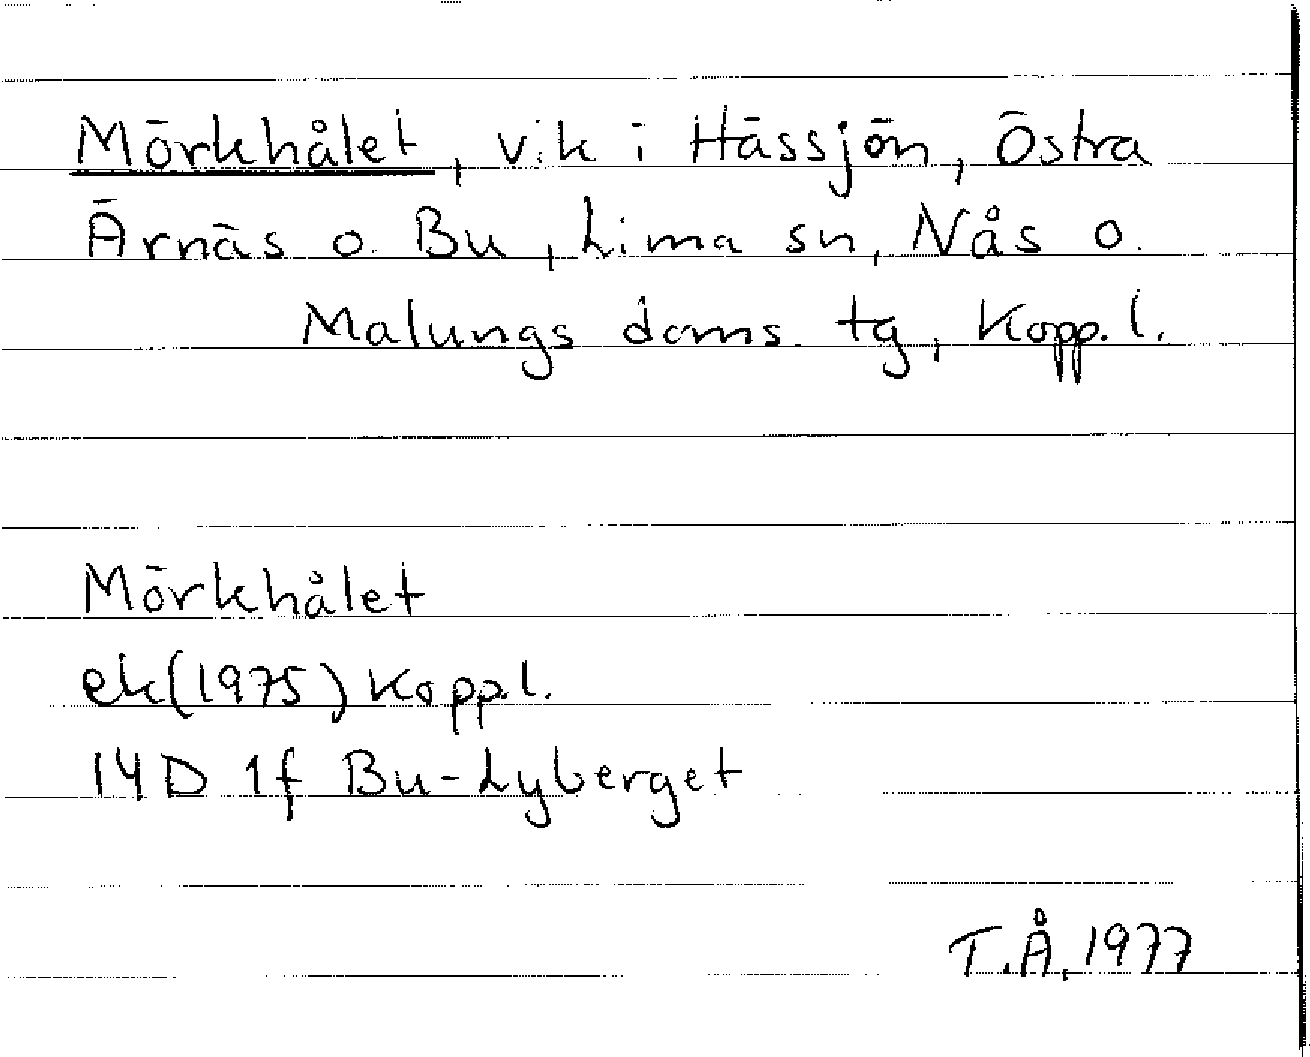 Mörkhålet, vik i Hässjön, Östra
Ärnäs o. Bu, Lima sn, Nås o.
Malungs doms. tg, Kopp. l.
Mörkhålet
ek(1975) Kopp.l.
14D 1f Bu-Lyberget
T.Å. 1977